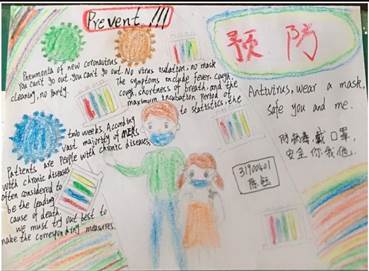 Prevent !!!
Pneumonia of new coronavirus
You can't go out you can't go out. No virus isolation, no mask
cleaning, no party. The symptoms include fever, cough,
cough, shortness of breath, and the
maximum incubation period of
two weeks. According to statistics, the
vast majority of
Patients are People with chronic diseases,
with chronic diseases
often considered to
be the leading
cause of death.
we must try out best to
make the corresponding measures.
预防
Antivirus, wear a mask,
safe you and me.
防病毒戴口罩,
安全你我他.